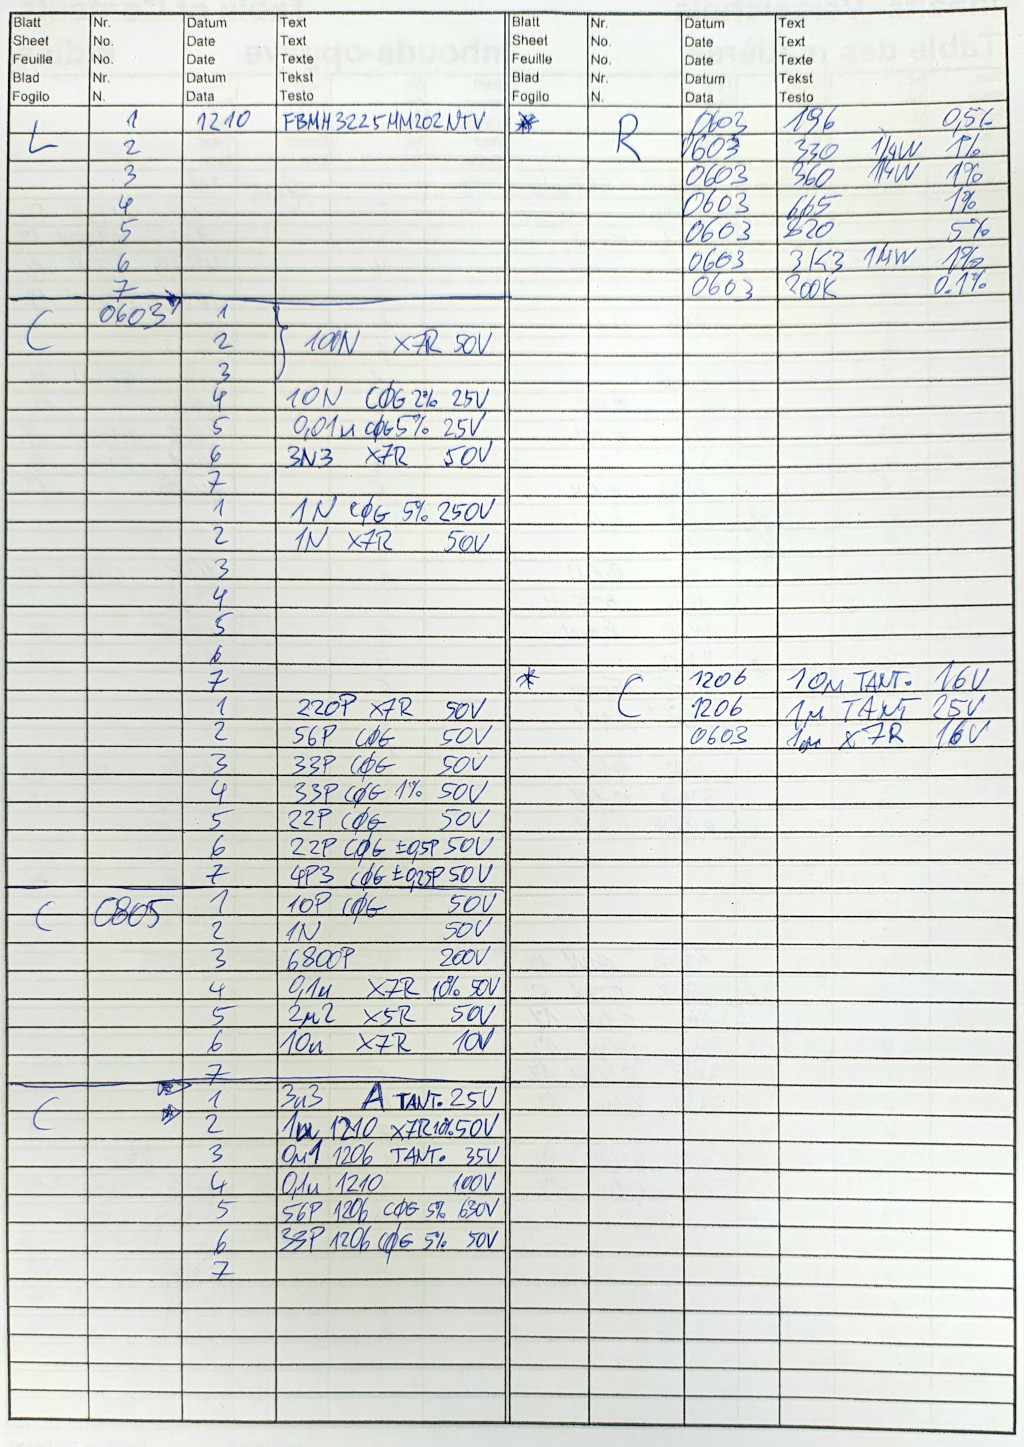 Blatt Nr. Datum Text Blatt Nr. Datum Text
Sheet No. Date Text Sheet No. Date Text
Feuille No. Date Texte Feuille No. Date Texte
Blad Nr. Datum Tekst Blad Nr. Datum Tekst
Fogilo N. Data Testo Fogilo N. Data Testo
L 1 1210 FBMH3225HM202NTV
2
3
4
5
6
7
C 0603 1
2 100N X7R 50V
3
4 10N CØG 2% 25V
5 0,01µ CØG 5% 25V
6 3N3 X7R 50V
7
1 1N CØG 5% 250V
2 1N X7R 50V
3
4
5
6
7
1 220P X7R 50V
2 56P CØG 50V
3 33P CØG 50V
4 33P CØG 1% 50V
5 22P CØG 50V
6 22P CØG ±0,5P 50V
7 4P3 CØG ±0,25P 50V
C 0805 1 10P CØG 50V
2 1N 50V
3 6800P 200V
4 0,1µ X7R 10% 50V
5 2µ2 X5R 50V
6 10µ X7R 10V
7
C 1 3µ3 A TANT. 25V
2 1µ 1210 X7R 10% 50V
3 0µ1 1206 TANT. 35V
4 0,1µ 1210 100V
5 56P 1206 CØG 5% 630V
6 33P 1206 CØG 5% 50V
7
* R 0603 196
0603 330 1/4W 1%
0603 360 1/4W 1%
0603 665 1%
0603 820 5%
0603 3K3 1/4W 1%
0603 200K 0.1%
* C 1206 10µ TANT. 16V
1206 1µ TANT 25V
0603 1µ X7R 16V